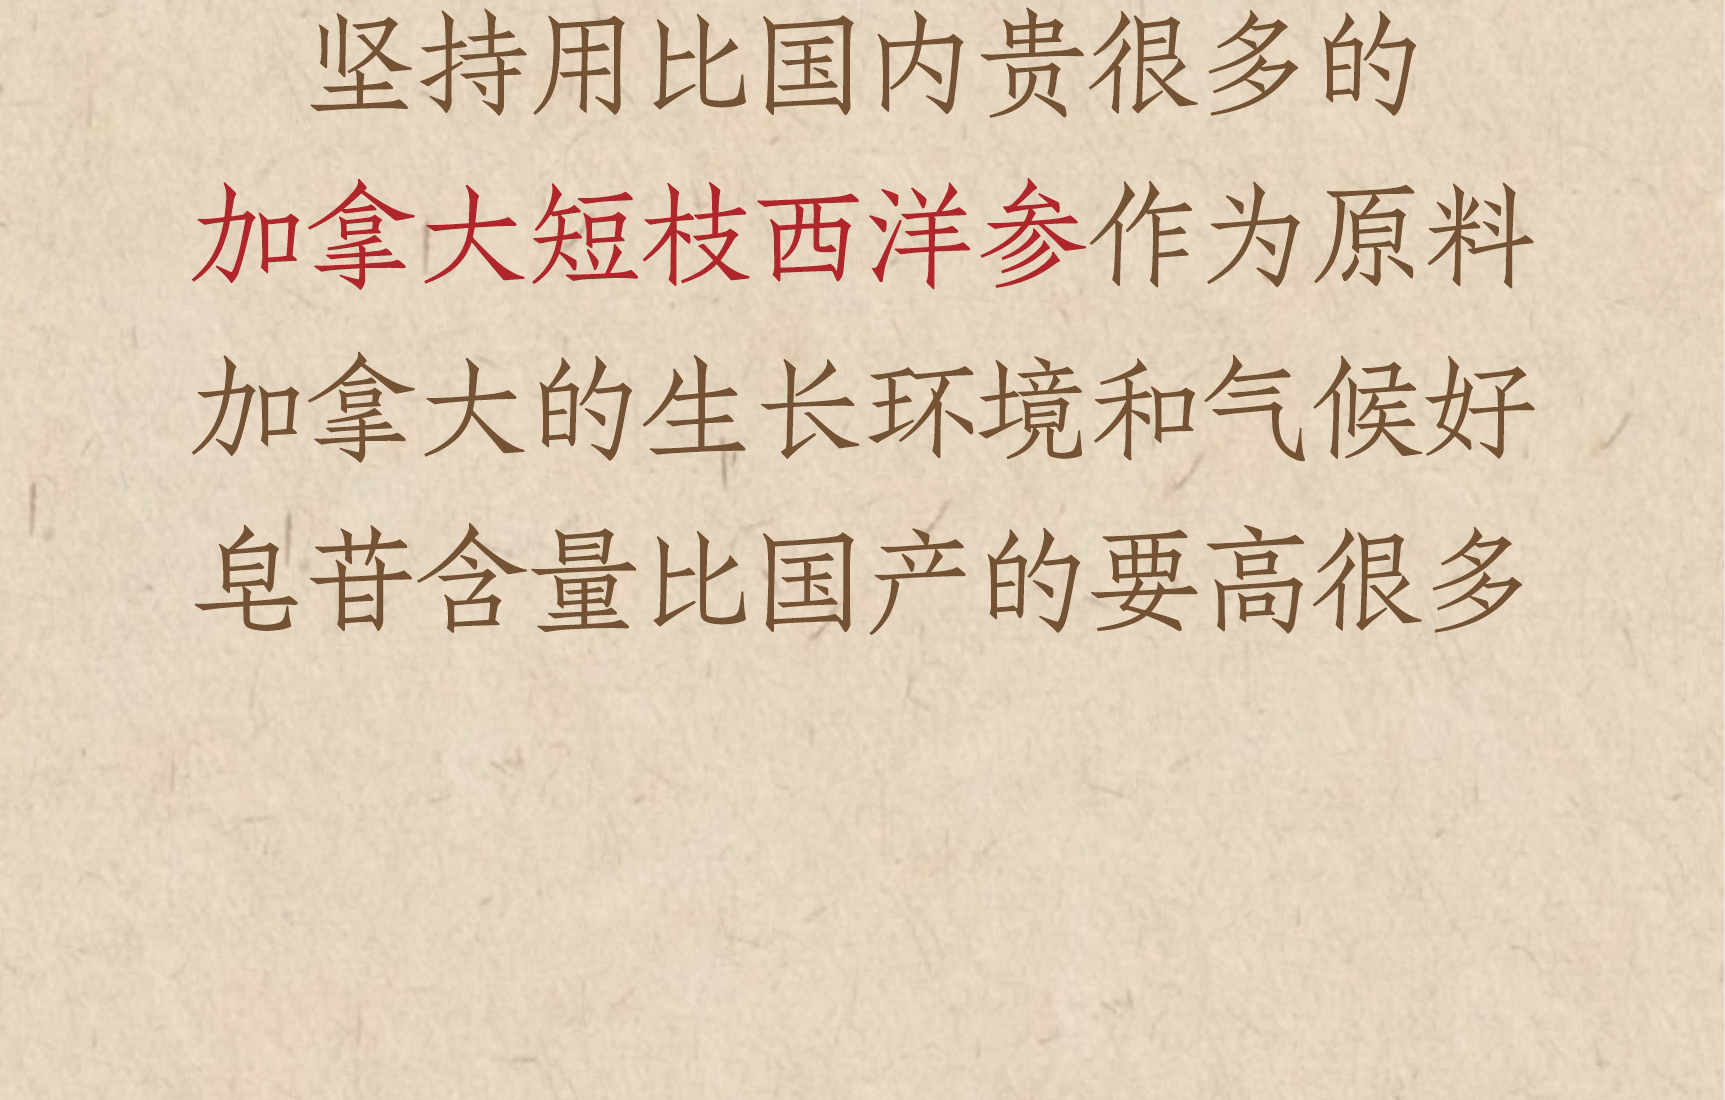 坚持用比国内贵很多的
加拿大短枝西洋参作为原料
加拿大的生长环境和气候好
皂苷含量比国产的要高很多